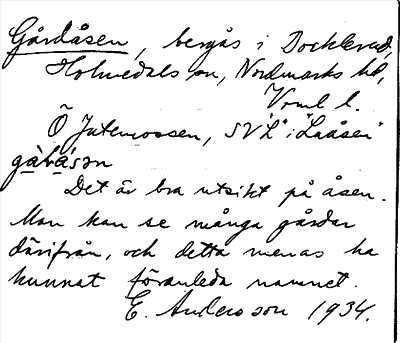 Gårdåsen, bergås i Dockerud,
Holmedals sn, Nordmarks hd,
Vrml l.
Ö Jutemossen, SV "L" i "Lååsen"
gàƚåsən
Det är bra utsikt på åsen.
Man kan se många gårdar
därifrån, och detta menas ha
kunnat föranleda namnet.
E. Andersson 1934.